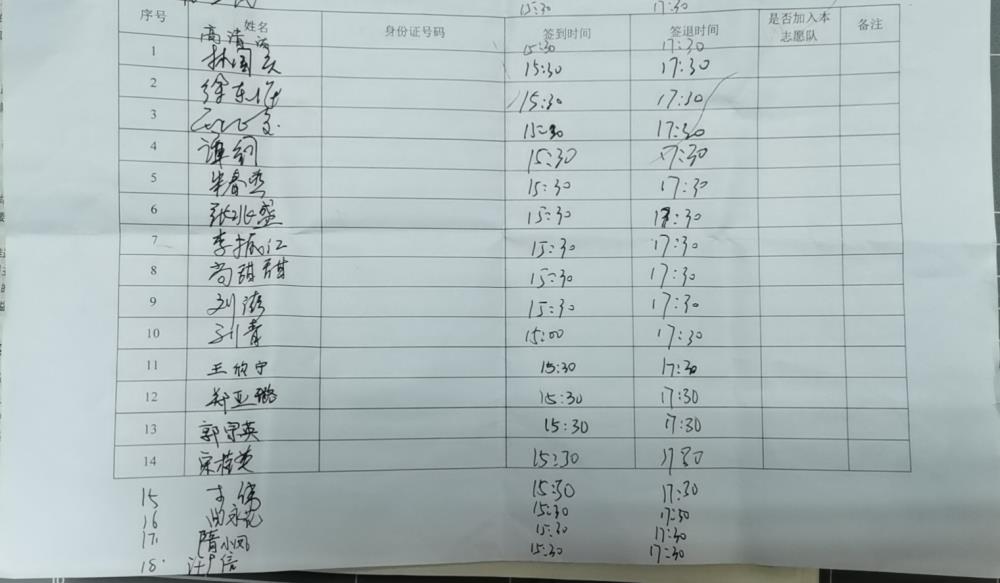 15:30 17:30
序号 姓名 身份证号码 签到时间 签退时间 是否加入本志愿队 备注
高清 15:30 17:30
1 林国 15:30 17:30
2 徐东 15:30 17:30
3 15:30 17:30
4 谭 15:30 17:30
5 朱春 15:30 17:30
6 张 15:30 17:30
7 李振江 15:30 17:30
8 尚甜甜 15:30 17:30
9 刘涛 15:30 17:30
10 孙青 15:00 17:30
11 王欣宁 15:30 17:30
12 郑亚璐 15:30 17:30
13 郭守英 15:30 17:30
14 宋桂英 15:30 17:30
15 李伟 15:30 17:30
16 尚永花 15:30 17:30
17. 隋小凤 15:30 17:30
18. 信 15:30 17:30